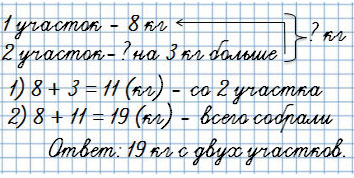 1 участок – 8 кг
? кг
2 участок – ? на 3 кг больше
1) 8 + 3 = 11 (кг) – со 2 участка
2) 8 + 11 = 19 (кг) – всего собрали
Ответ: 19 кг с двух участков.